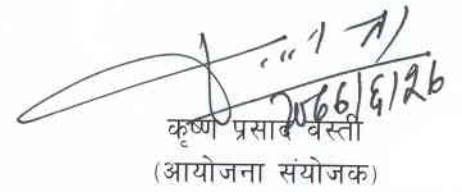 २०६६/६/२६
कृष्ण प्रसाद वस्ती
(आयोजना संयोजक)